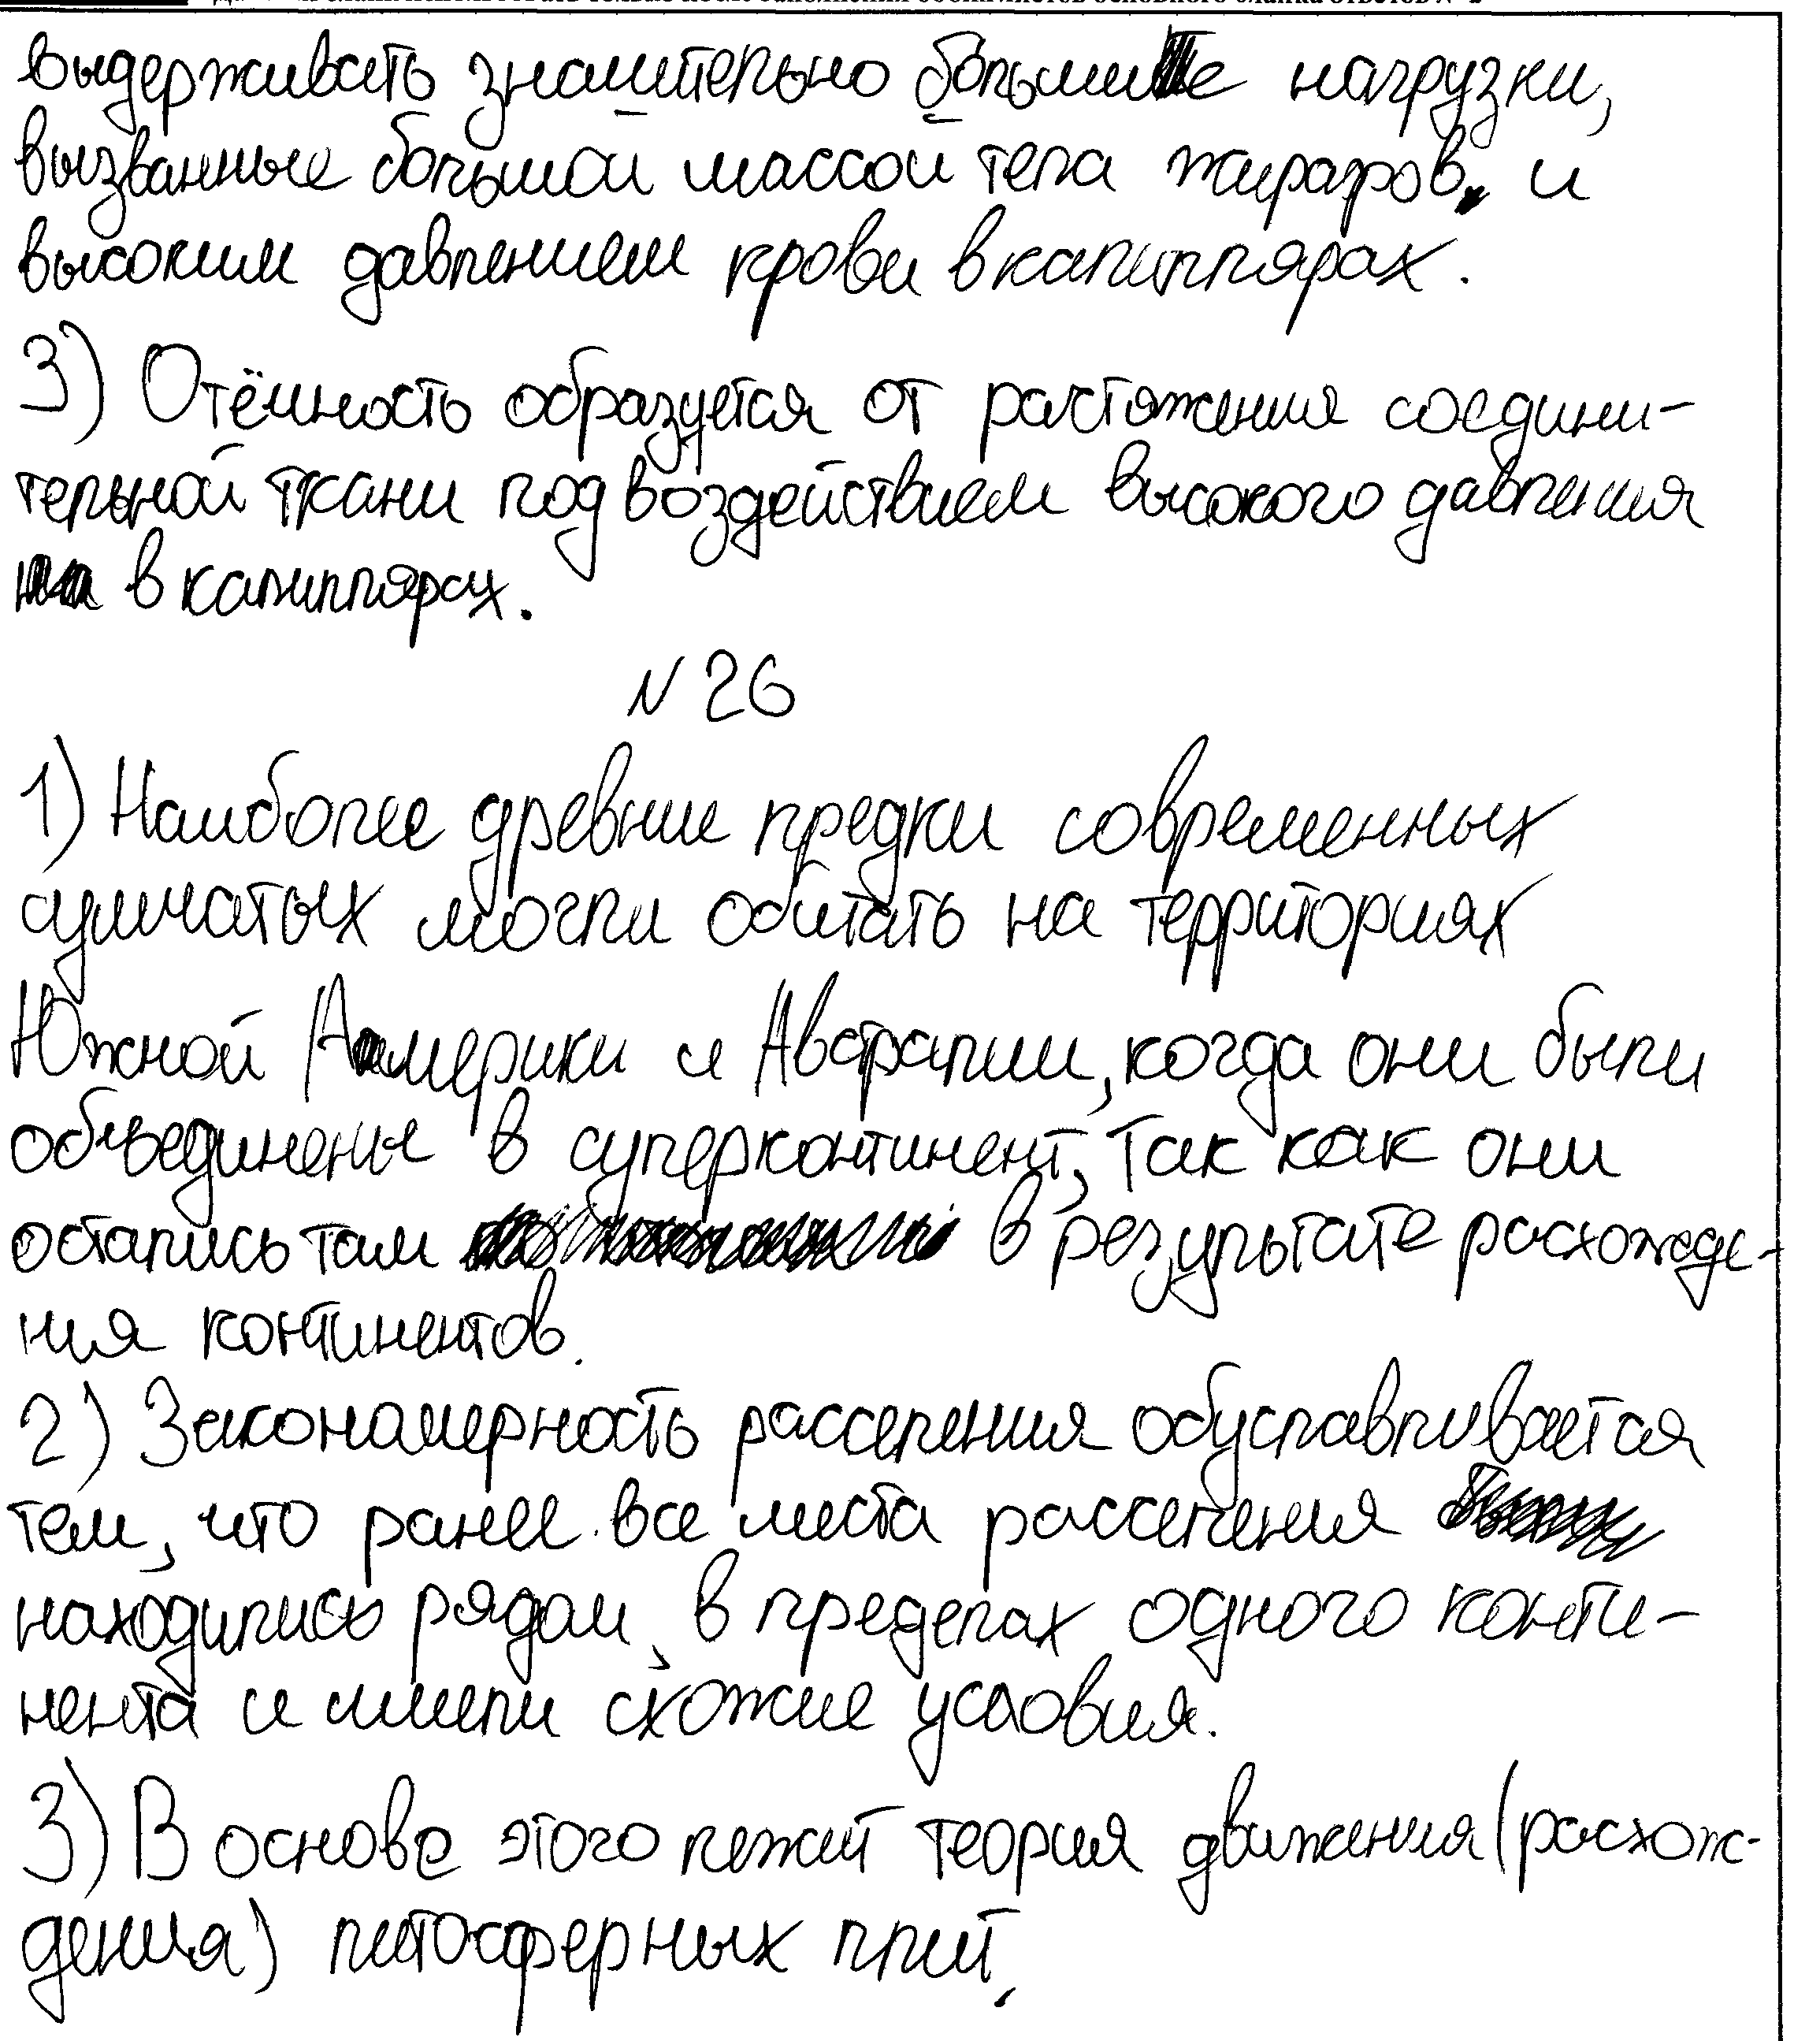 выдерживать значительно большие нагрузки,
вызванные большой массой тела жирафов и
высоким давлением крови в капиллярах.
3) Отёчность образуется от растяжения соедини-
тельной ткани под воздействием высокого давления
в капиллярах.
№ 26
1) Наиболее древние предки современных
сумчатых могли обитать на территориях
Южной Америки и Австралии, когда они были
объединены в суперконтинент, так как они
остались там в результате расхожде-
ния континентов.
2) Закономерность расселения обуславливается
тем, что ранее все места расселения
находились рядом, в пределах одного конти-
нента и имели схожие условия.
3) В основе этого лежит теория движения (расхож-
дения) литосферных плит.